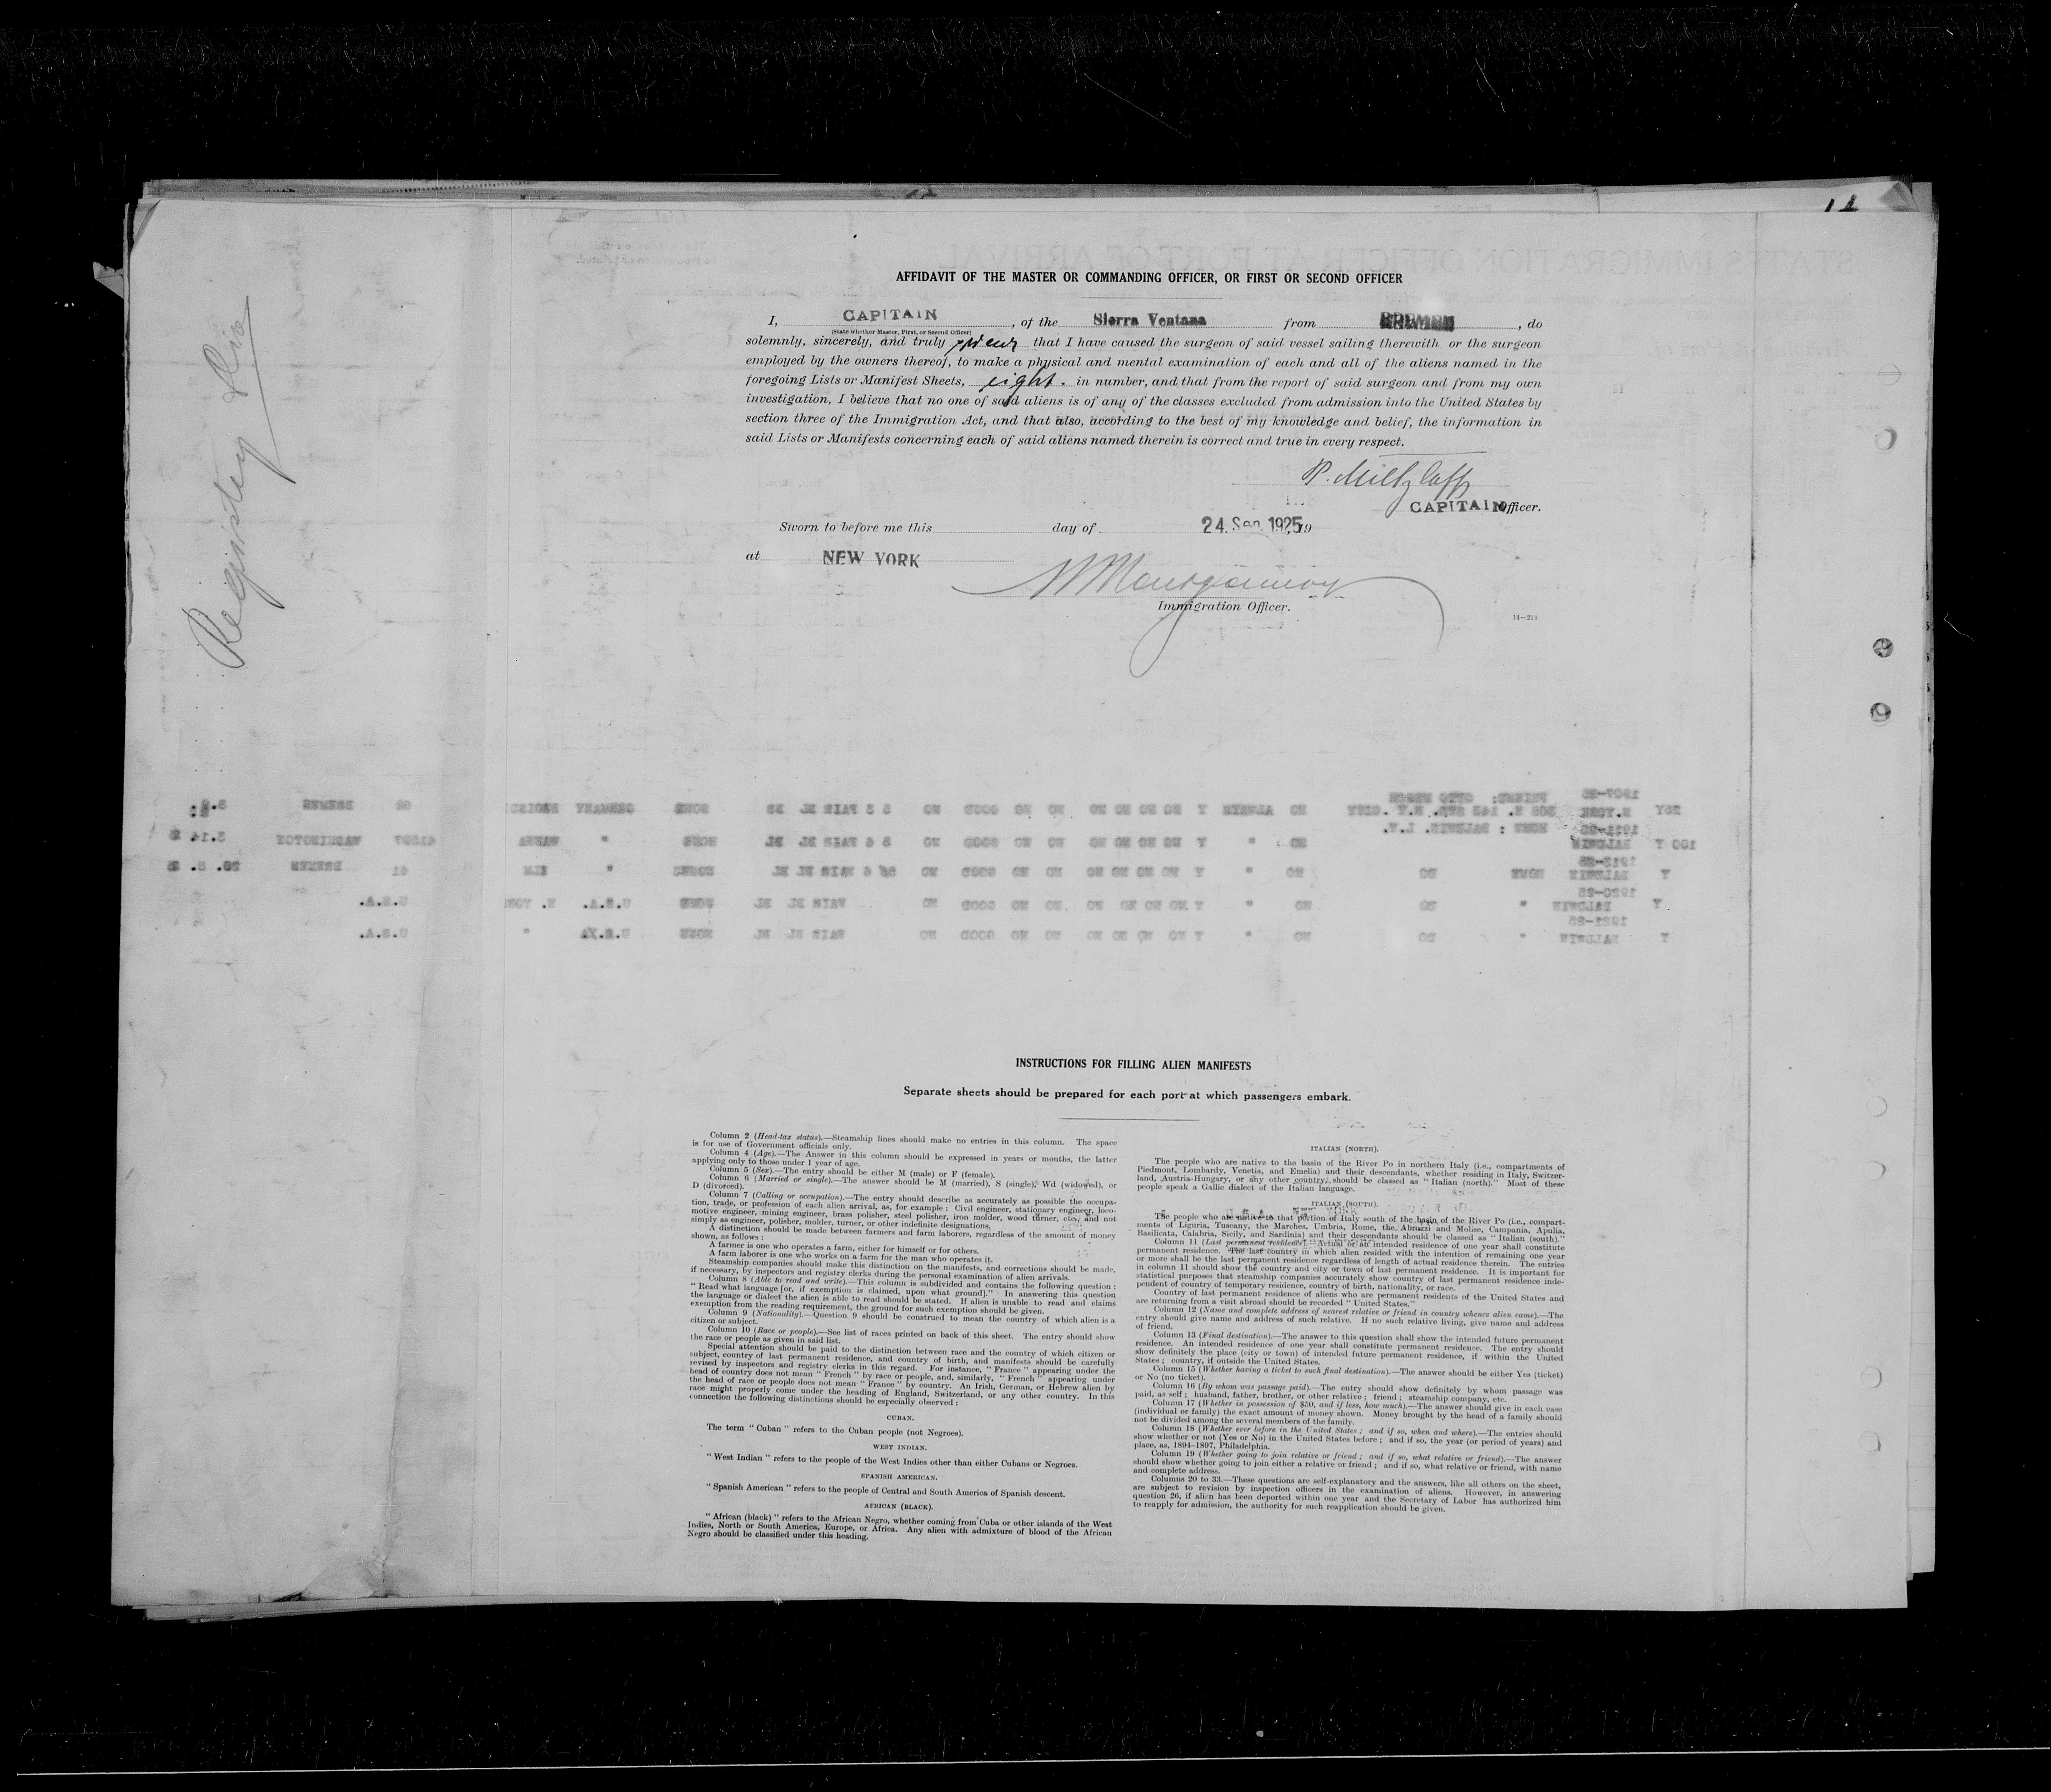 AFFIDAVIT OF THE MASTER OR COMMANDING OFFICER, OR FIRST OR SECOND OFFICER
I, CAPITAIN, of the Sierra Ventana from BREMEN, do
(State whether Master, First, or Second Officer)
solemnly, sincerely, and truly swear that I have caused the surgeon of said vessel sailing therewith or the surgeon
employed by the owners thereof, to make a physical and mental examination of each and all of the aliens named in the
foregoing Lists or Manifest Sheets, eight. in number, and that from the report of said surgeon and from my own
investigation, I believe that no one of said aliens is of any of the classes excluded from admission into the United States by
section three of the Immigration Act, and that also, according to the best of my knowledge and belief, the information in
said Lists or Manifests concerning each of said aliens named therein is correct and true in every respect.
CAPITAIN Officer.
Sworn to before me this day of 24. Sep. 1925, 19
at NEW YORK
Immigration Officer.
14—211
Registry Div
INSTRUCTIONS FOR FILLING ALIEN MANIFESTS
Separate sheets should be prepared for each port at which passengers embark.
Column 2 (Head-tax status).—Steamship lines should make no entries in this column. The space
is for use of Government officials only.
Column 4 (Age).—The Answer in this column should be expressed in years or months, the latter
applying only to those under 1 year of age.
Column 5 (Sex).—The entry should be either M (male) or F (female).
Column 6 (Married or single).—The answer should be M (married), S (single), Wd (widowed), or
D (divorced).
Column 7 (Calling or occupation).—The entry should describe as accurately as possible the occupa-
tion, trade, or profession of each alien arrival, as, for example: Civil engineer, stationary engineer, loco-
motive engineer, mining engineer, brass polisher, steel polisher, iron molder, wood turner, etc., and not
simply as engineer, polisher, molder, turner, or other indefinite designations.
A distinction should be made between farmers and farm laborers, regardless of the amount of money
shown, as follows:
A farmer is one who operates a farm, either for himself or for others.
A farm laborer is one who works on a farm for the man who operates it.
Steamship companies should make this distinction on the manifests, and corrections should be made,
if necessary, by inspectors and registry clerks during the personal examination of alien arrivals.
Column 8 (Able to read and write).—This column is subdivided and contains the following question:
" Read what language [or, if exemption is claimed, upon what ground]." In answering this question
the language or dialect the alien is able to read should be stated. If alien is unable to read and claims
exemption from the reading requirement, the ground for such exemption should be given.
Column 9 (Nationality).—Question 9 should be construed to mean the country of which alien is a
citizen or subject.
Column 10 (Race or people).—See list of races printed on back of this sheet. The entry should show
the race or people as given in said list.
Special attention should be paid to the distinction between race and the country of which citizen or
subject, country of last permanent residence, and country of birth, and manifests should be carefully
revised by inspectors and registry clerks in this regard. For instance, " France " appearing under the
head of country does not mean " French " by race or people, and, similarly, " French " appearing under
the head of race or people does not mean " France " by country. An Irish, German, or Hebrew alien by
race might properly come under the heading of England, Switzerland, or any other country. In this
connection the following distinctions should be especially observed:
CUBAN.
The term " Cuban " refers to the Cuban people (not Negroes).
WEST INDIAN.
" West Indian " refers to the people of the West Indies other than either Cubans or Negroes.
SPANISH AMERICAN.
" Spanish American " refers to the people of Central and South America of Spanish descent.
AFRICAN (BLACK).
" African (black) " refers to the African Negro, whether coming from Cuba or other islands of the West
Indies, North or South America, Europe, or Africa. Any alien with admixture of blood of the African
Negro should be classified under this heading.
ITALIAN (NORTH).
The people who are native to the basin of the River Po in northern Italy (i.e., compartments of
Piedmont, Lombardy, Venetia, and Emelia) and their descendants, whether residing in Italy, Switzer-
land, Austria-Hungary, or any other country, should be classed as " Italian (north)." Most of these
people speak a Gallic dialect of the Italian language.
ITALIAN (SOUTH).
The people who are native to that portion of Italy south of the basin of the River Po (i.e., compart-
ments of Liguria, Tuscany, the Marches, Umbria, Rome, the Abruzzi and Molise, Campania, Apulia,
Basilicata, Calabria, Sicily, and Sardinia) and their descendants should be classed as " Italian (south)."
Column 11 (Last permanent residence).—Actual or an intended residence of one year shall constitute
permanent residence. The last country in which alien resided with the intention of remaining one year
or more shall be the last permanent residence regardless of length of actual residence therein. The entries
in column 11 should show the country and city or town of last permanent residence. It is important for
statistical purposes that steamship companies accurately show country of last permanent residence inde-
pendent of country of temporary residence, country of birth, nationality, or race.
Country of last permanent residence of aliens who are permanent residents of the United States and
are returning from a visit abroad should be recorded " United States."
Column 12 (Name and complete address of nearest relative or friend in country whence alien came).—The
entry should give name and address of such relative. If no such relative living, give name and address
of friend.
Column 13 (Final destination).—The answer to this question shall show the intended future permanent
residence. An intended residence of one year shall constitute permanent residence. The entry should
show definitely the place (city or town) of intended future permanent residence, if within the United
States; country, if outside the United States.
Column 15 (Whether having a ticket to such final destination).—The answer should be either Yes (ticket)
or No (no ticket).
Column 16 (By whom was passage paid).—The entry should show definitely by whom passage was
paid, as self; husband, father, brother, or other relative; friend; steamship company, etc.
Column 17 (Whether in possession of $50, and if less, how much).—The answer should give in each case
(individual or family) the exact amount of money shown. Money brought by the head of a family should
not be divided among the several members of the family.
Column 18 (Whether ever before in the United States; and if so, when and where).—The entries should
show whether or not (Yes or No) in the United States before; and if so, the year (or period of years) and
place, as, 1894–1897, Philadelphia.
Column 19 (Whether going to join relative or friend; and if so, what relative or friend).—The answer
should show whether going to join either a relative or friend; and if so, what relative or friend, with name
and complete address.
Columns 20 to 33.—These questions are self-explanatory and the answers, like all others on the sheet,
are subject to revision by inspection officers in the examination of aliens. However, in answering
question 26, if alien has been deported within one year and the Secretary of Labor has authorized him
to reapply for admission, the authority for such reapplication should be given.